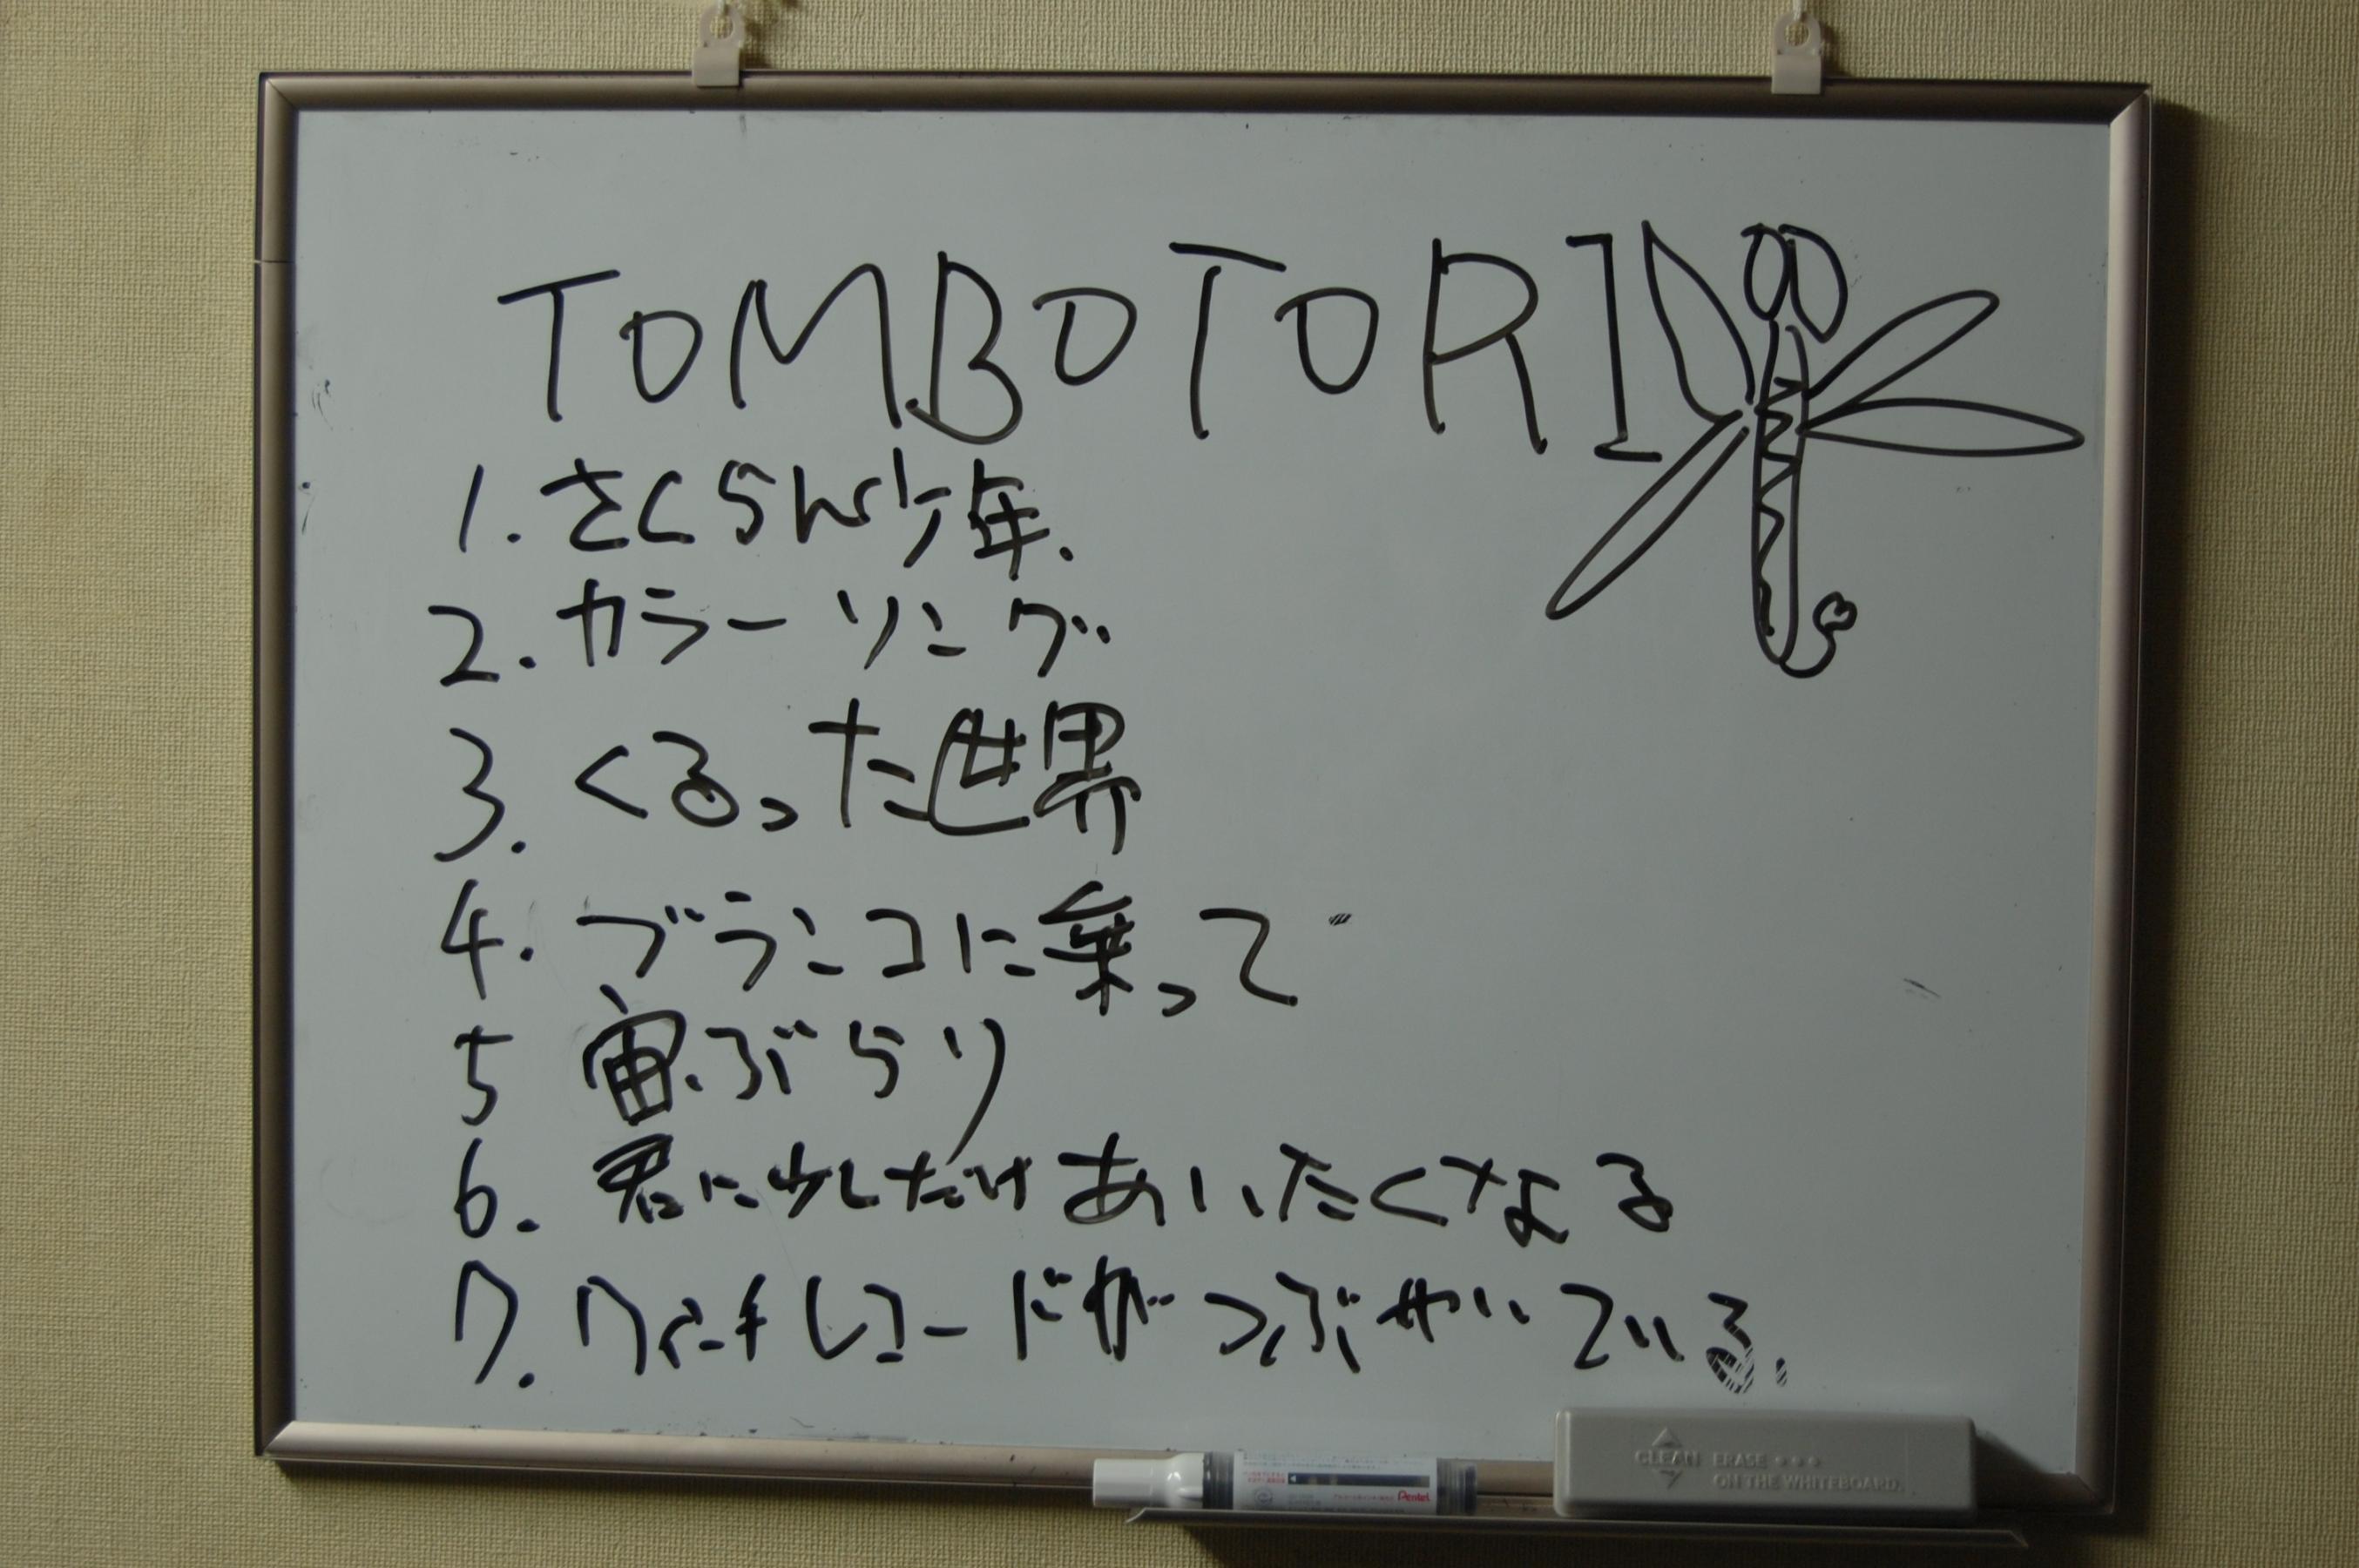 TOMBOTORI
1. さくらん少年.
2. カラーリング
3. くるった世界
4. ブランコに乗って
5 宙ぶらり
6. 君に少しだけあいたくなる
7. 7インチレコードがつぶやいている.
CLEAN ERASE
ON THE WHITEBOARD.
Pentel